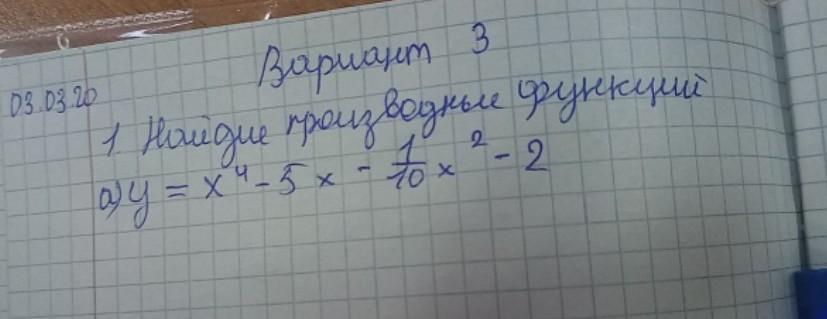 Вариант 3
03.03.20
1 Найдие производные функций
а) y = x⁴ - 5x - 1/10 x² - 2